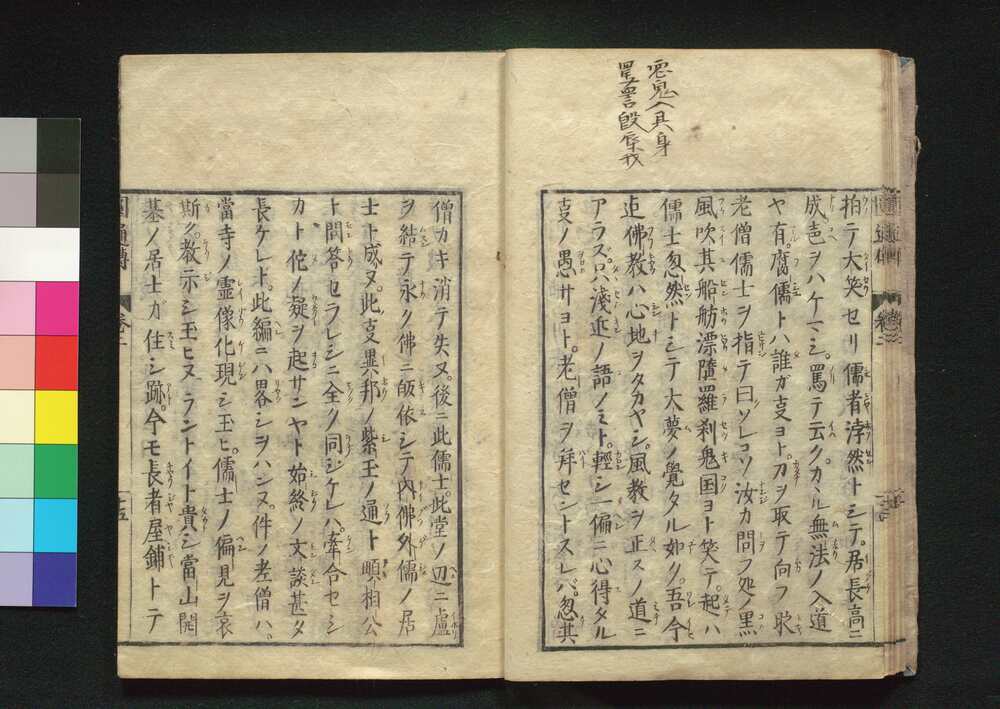 悪鬼入其身
罵詈毀辱我
拍テ大笑セリ儒者浡然トシテ。居長高ニ
成䒾ヲハケマシ。罵テ云ク。カヽル無法ノ入道
ヤ有。腐儒トハ誰ガ叓ヨト。刀ヲ取テ向フ耿
老僧儒士ヲ指テ曰ソレコソ汝カ問フ処ノ黒
風吹其船舫漂墮羅刹鬼国ヨト笑テ。起ハ
儒士忽然トシテ大夢ノ覺タル如ク。吾今
迠佛教ハ心地ヲタカヤシ。風教ヲ正スノ道ニ
アラス。只淺近ノ語ノミト。輕シ一偏ニ心得タル
叓ノ愚サヨト。老僧ヲ拜セントスレバ。忽其
僧カキ消テ失ヌ。後ニ此儒士。此堂ノ辺ニ盧
ヲ結テ永ク佛ニ皈依シテ內佛外儒ノ居
士ト成ヌ。此叓異邦ノ紫玉ノ通ト𬱖相公
ト問答セラレシニ全ク同シケレハ。牽合セシ
カト佗ノ疑ヲ起サンヤト始終ノ文談甚タ
長ケレド。此編ニハ畧シヲハンヌ。件ノ老僧ハ。
當寺ノ霊像化現シ玉ヒ。儒士ノ偏見ヲ哀
斯ク教示シ玉ヒヌラントイト貴シ當山開
基ノ居士ガ住シ跡。今モ長者屋鋪トテ
圓通傳 卷二 十五